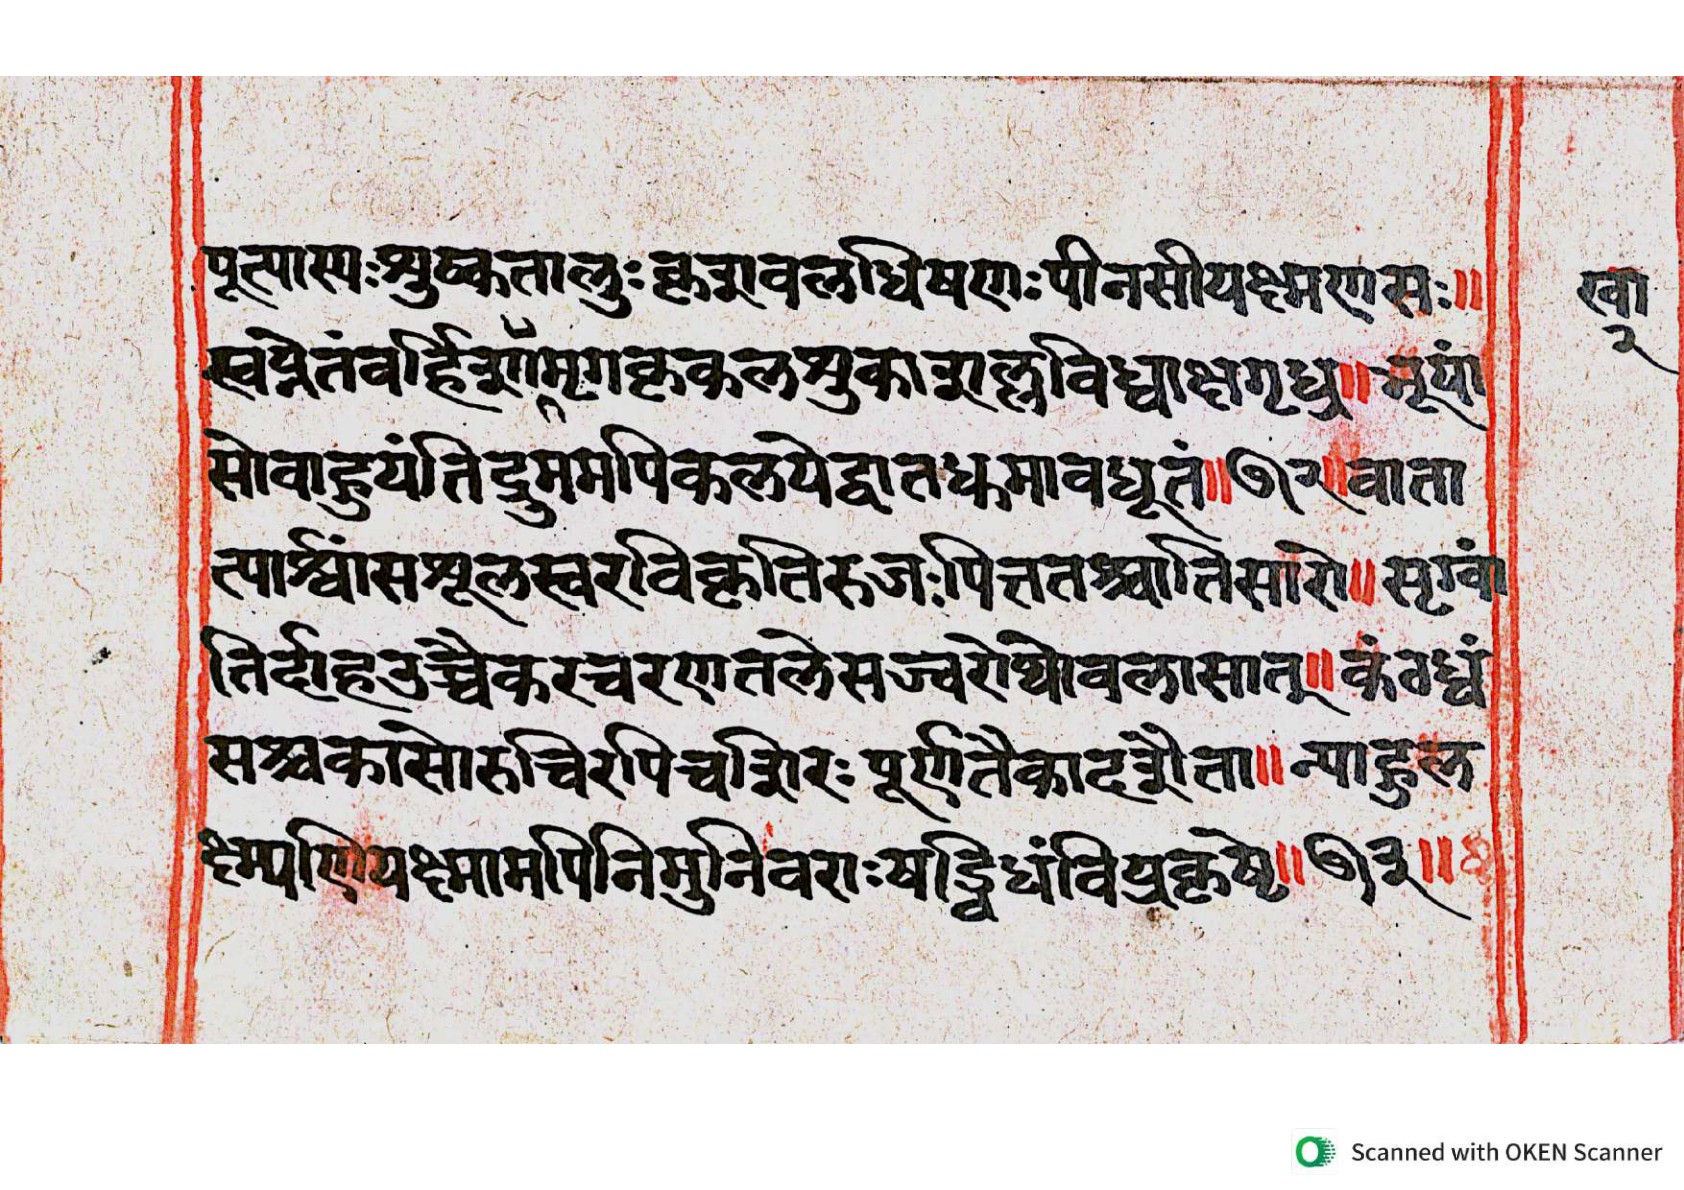 पूत्यास्यःशुष्कतालुःकृशवलधिषणःपीनसीयक्ष्मणसः॥
स्वप्नेतंवर्हिशशमृगकृकलशुकाशल्लविध्वाक्षगृध्र॥भूयां
सोवाहयंतिद्रुममपिकलयेद्वातधूमावधूतं॥७२॥वाता
त्पार्श्वांसशूलस्वरविकृतिरुजःपित्ततश्चातिसारो॥सृग्वां
तिर्दाहउच्चैकरचरणतलेसज्वरोथोवलासात्॥कंठध्वं
सश्चकासोरुचिरपिचशिरःपूर्णतैकादशैता॥न्याहुल
क्ष्म्यणियक्ष्मामपिनिमुनिवराःषड्विधंवियुक्तषे॥७३॥
Scanned with OKEN Scanner